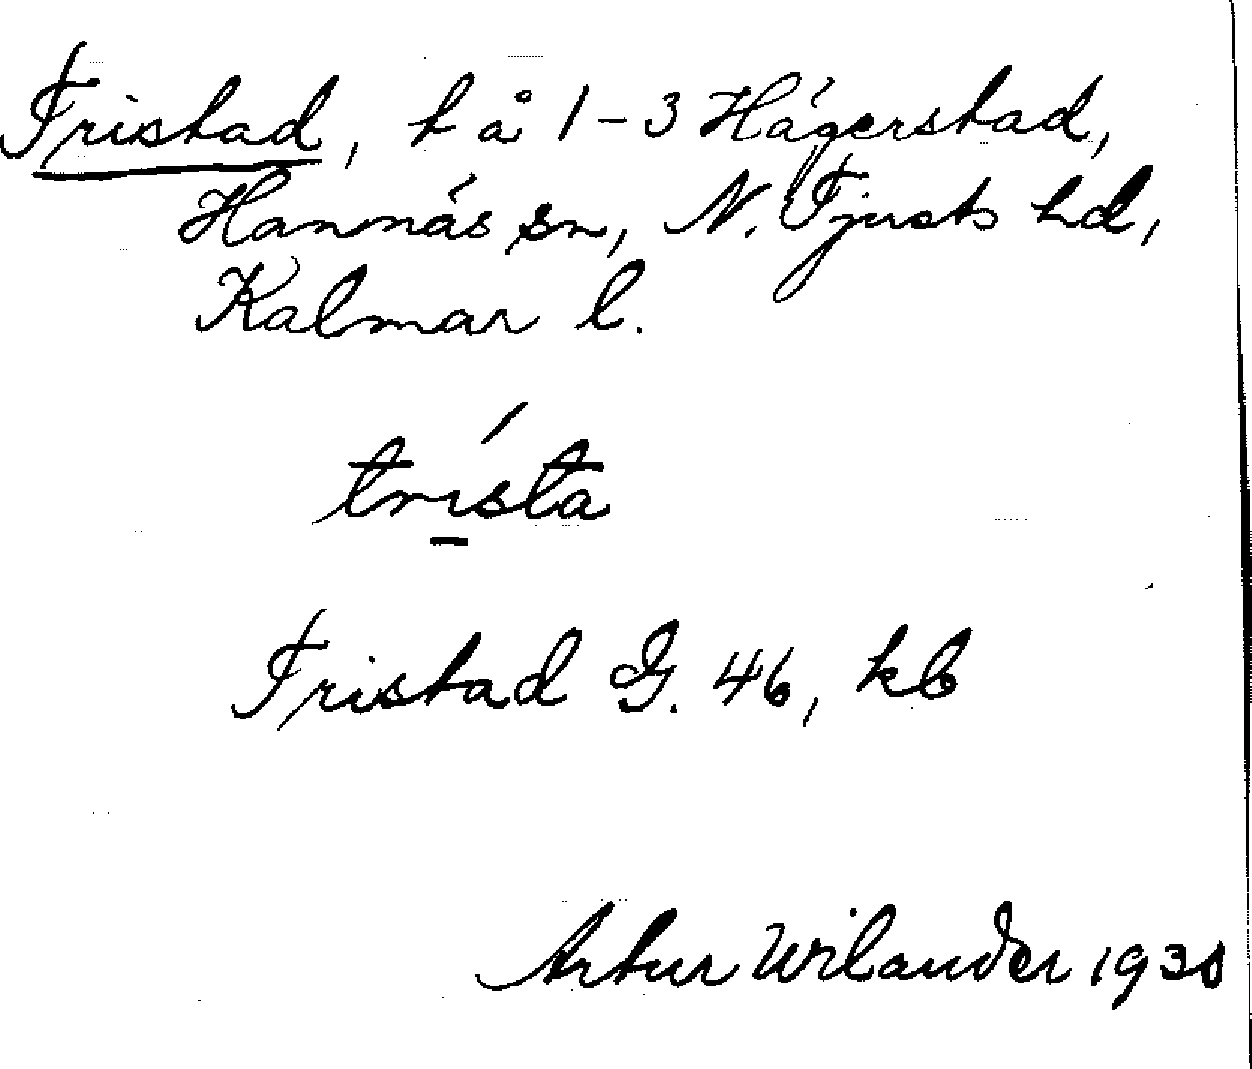 Tristad, t å 1-3 Hägerstad,
Hannäs sn, N. Tjusts hd,
Kalmar l.
trı́sta
Tristad G. 46, kb
Artur Wilander 1930